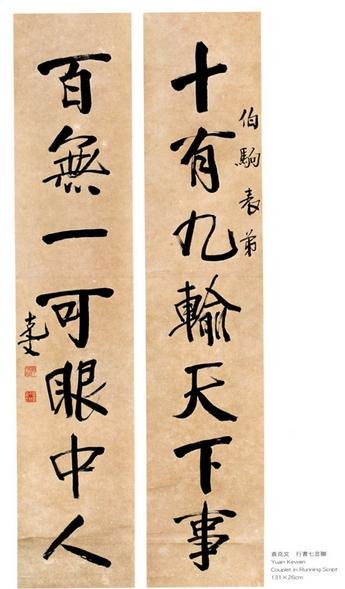 伯駒表弟
十有九輸天下事
百無一可眼中人
克文
袁克文 行書七言聯
Yuan Kewen
Couplet in Running Script
131×26cm